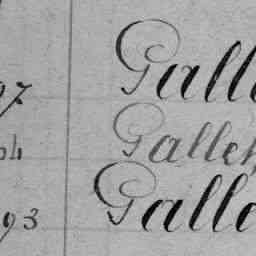 97 Galle
04 Galleh
93 Galle